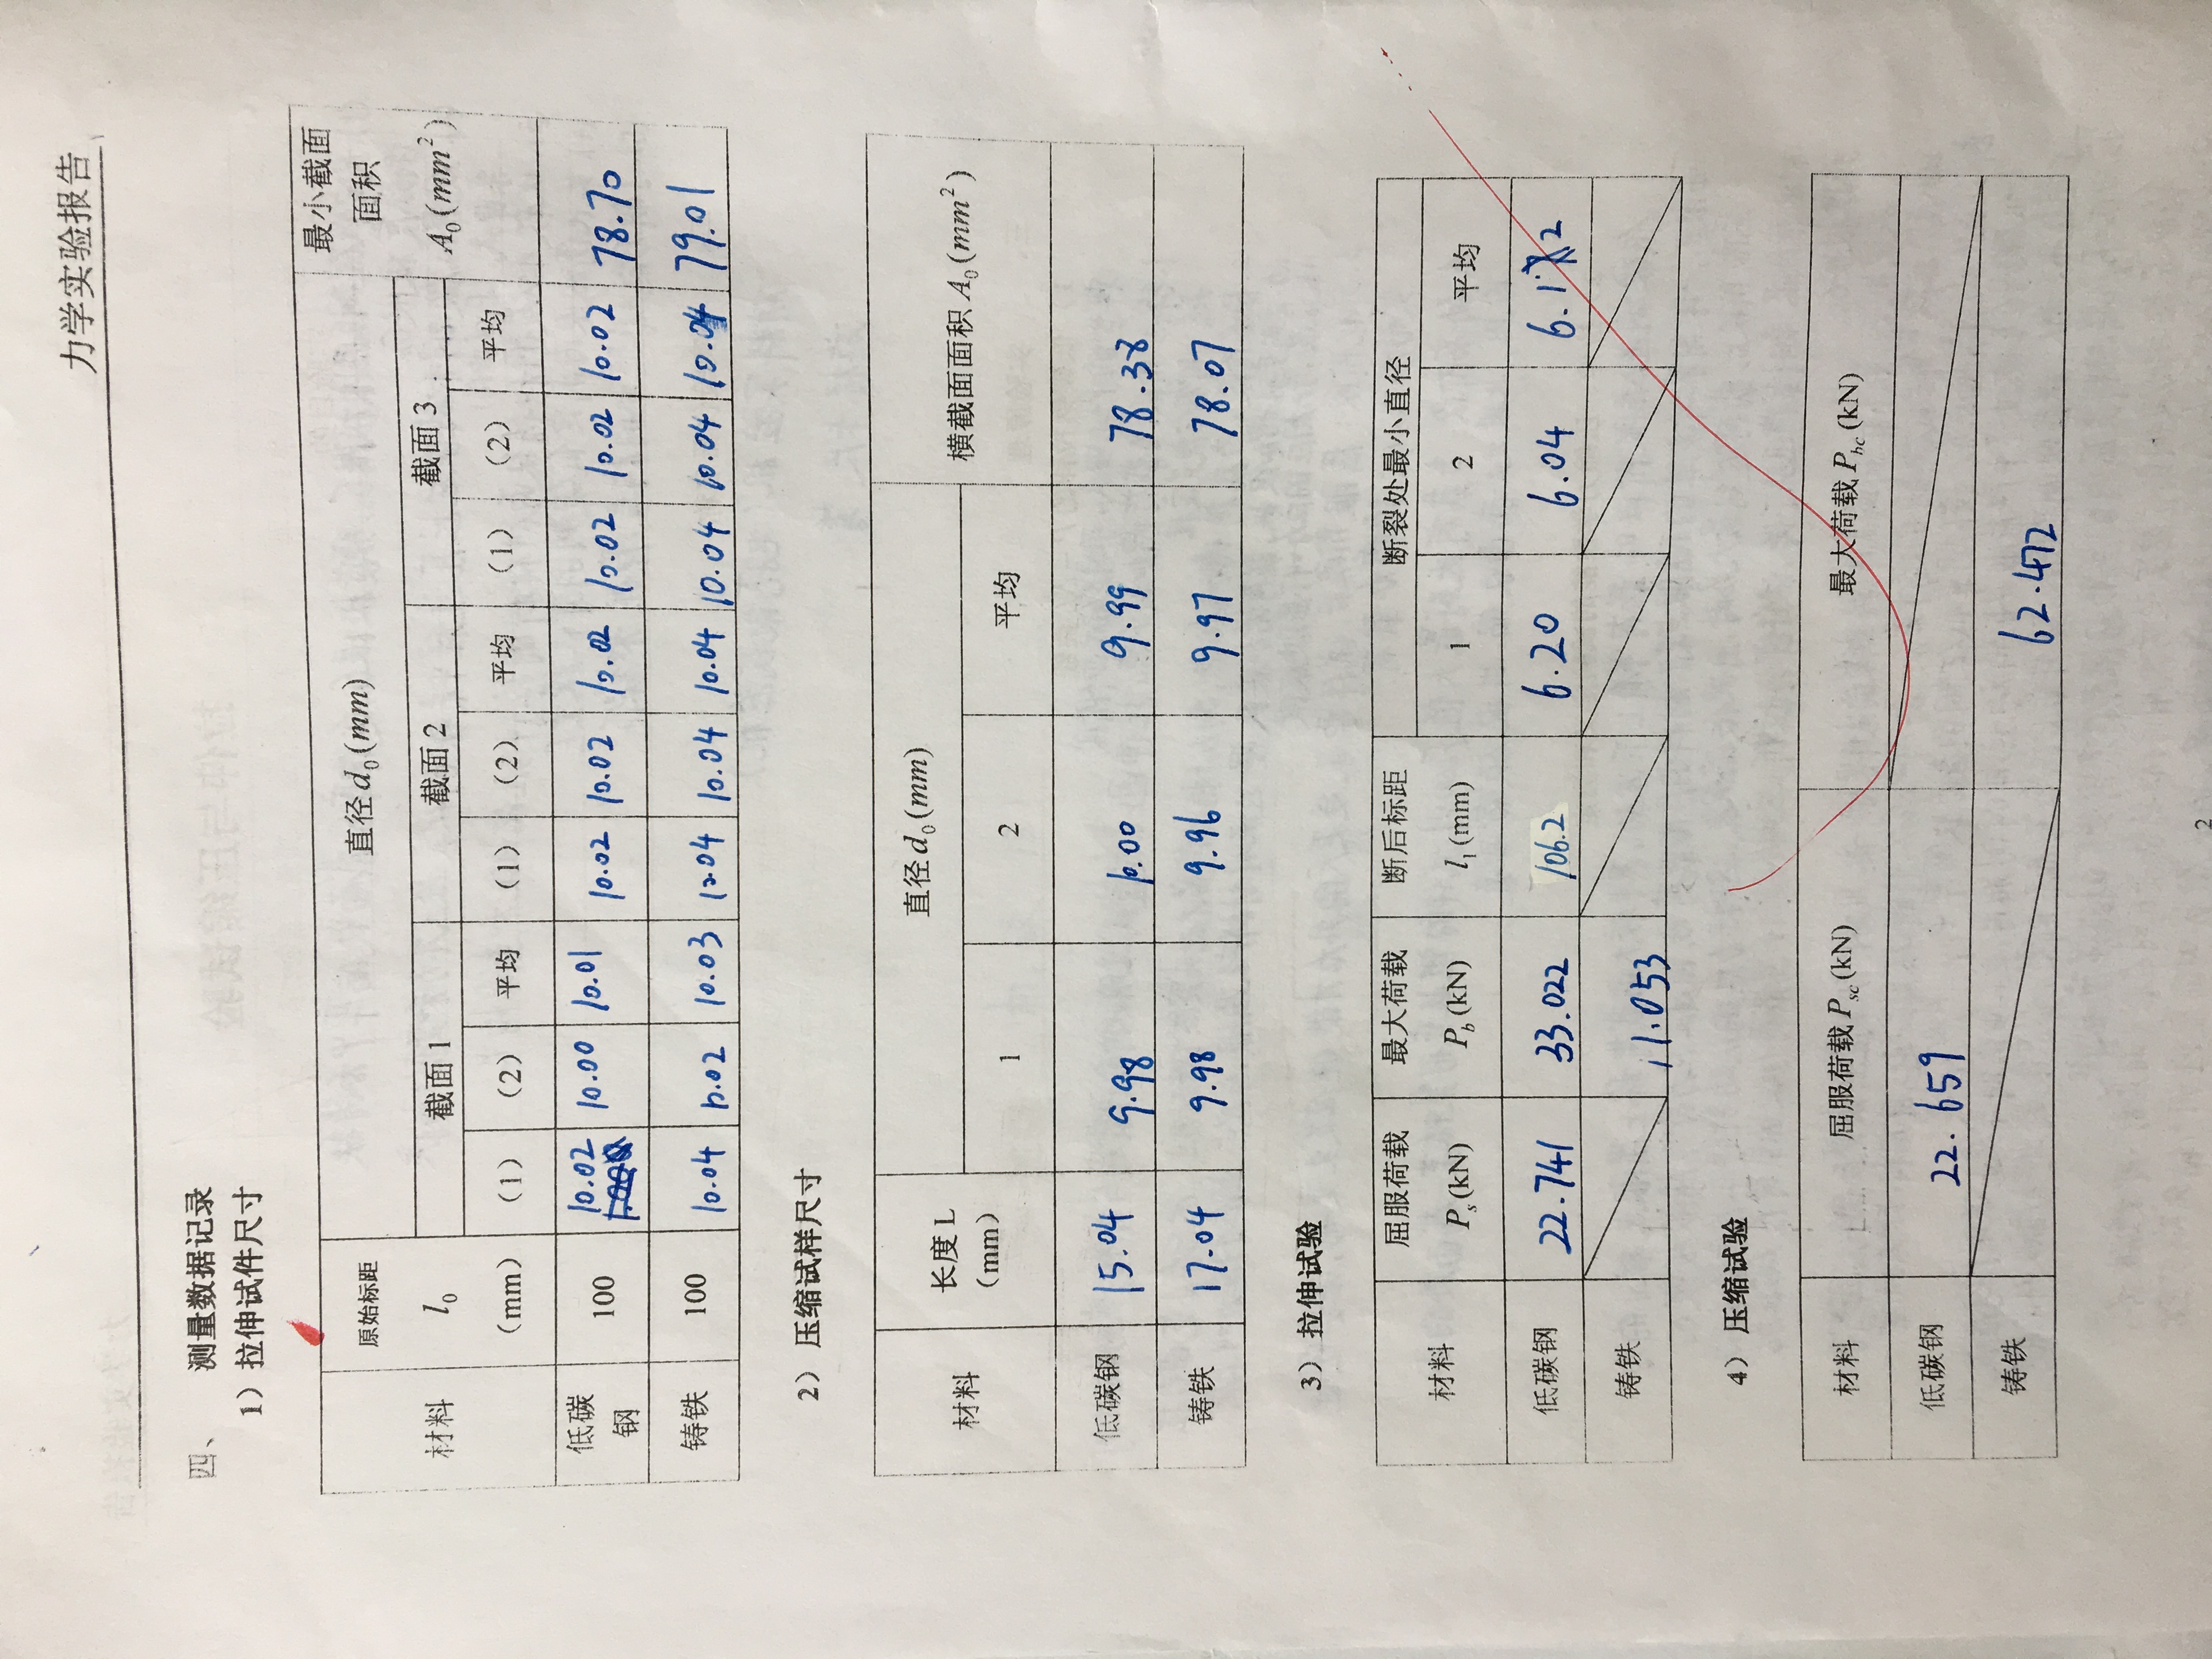 力学实验报告
四、 测量数据记录
1）拉伸试件尺寸
材料 原始标距 l₀ （mm） 直径 d₀(mm) 最小截面面积 A₀(mm²)
截面 1 截面 2 截面 3
（1） （2） 平均 （1） （2） 平均 （1） （2） 平均
低碳钢 100 10.02 10.00 10.01 10.02 10.02 10.02 10.02 10.02 10.02 78.70
铸铁 100 10.04 10.02 10.03 10.04 10.04 10.04 10.04 10.04 10.04 79.01
2） 压缩试样尺寸
材料 长度 L （mm） 直径 d₀(mm) 横截面面积 A₀(mm²)
1 2 平均
低碳钢 15.04 9.98 10.00 9.99 78.38
铸铁 17.04 9.98 9.96 9.97 78.07
3） 拉伸试验
材料 屈服荷载 Pₛ(kN) 最大荷载 P_b(kN) 断后标距 l₁(mm) 断裂处最小直径
1 2 平均
低碳钢 22.741 33.022 106.2 6.20 6.04 6.12
铸铁 11.053
4） 压缩试验
材料 屈服荷载 P_sc(kN) 最大荷载 P_bc(kN)
低碳钢 22.659
铸铁 62.472
2